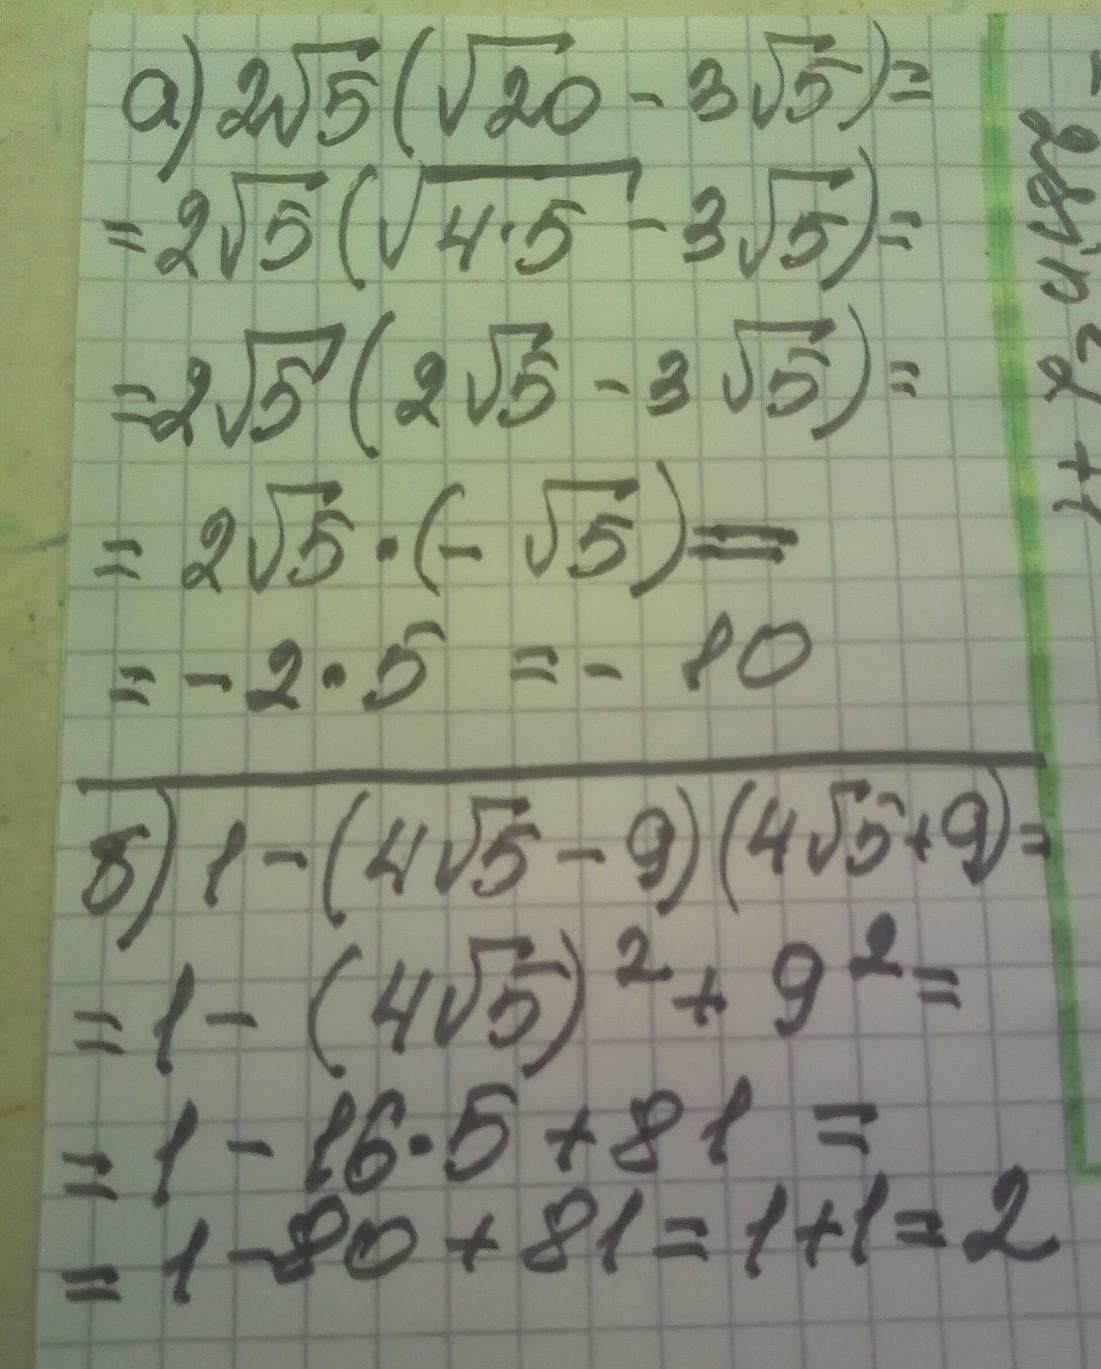 а) 2√5(√20 - 3√5)=
= 2√5(√4·5 - 3√5)=
= 2√5(2√5 - 3√5)=
= 2√5·(-√5)=
= -2·5 = -10
б) 1-(4√5-9)(4√5+9)=
= 1-(4√5)²+9²=
= 1-16·5+81=
= 1-80+81=1+1=2